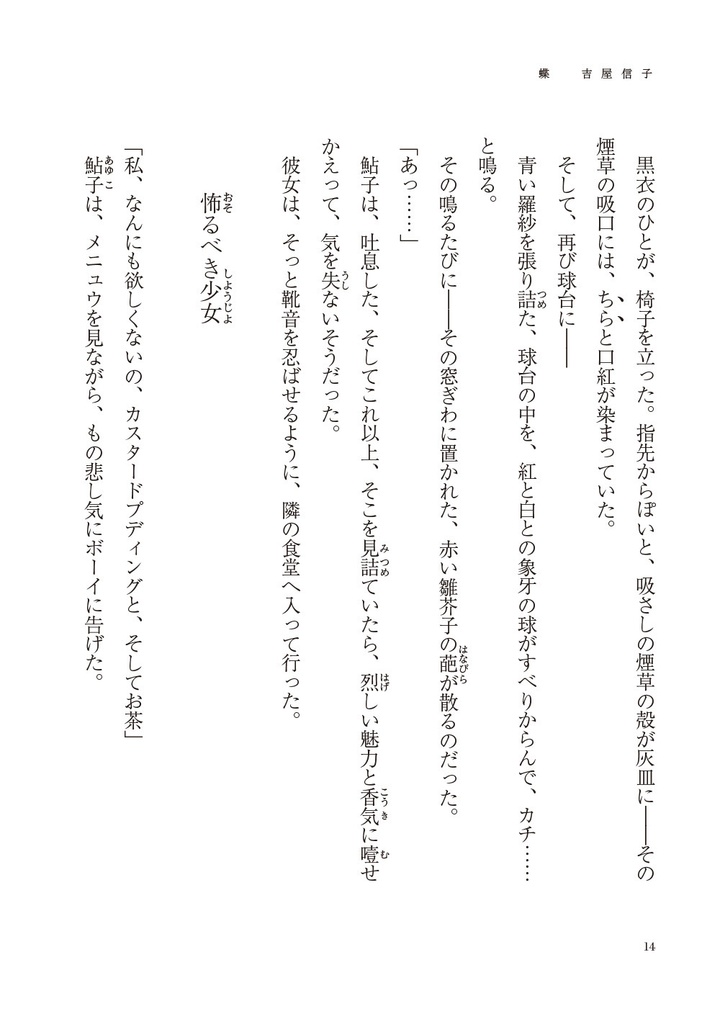 蝶　吉屋信子
黒衣のひとが、椅子を立った。指先からぽいと、吸さしの煙草の殻が灰皿に――その
煙草の吸口には、ちらと口紅が染まっていた。
そして、再び球台に――
青い羅紗を張り詰た、球台の中を、紅と白との象牙の球がすべりからんで、カチ……
と鳴る。
その鳴るたびに――その窓ぎわに置かれた、赤い雛芥子の葩が散るのだった。
「あっ……」
鮎子は、吐息した、そしてこれ以上、そこを見詰ていたら、烈しい魅力と香気に噎せ
かえって、気を失ないそうだった。
彼女は、そっと靴音を忍ばせるように、隣の食堂へ入って行った。
怖るべき少女
「私、なんにも欲しくないの、カスタードプディングと、そしてお茶」
鮎子は、メニュウを見ながら、もの悲し気にボーイに告げた。
14